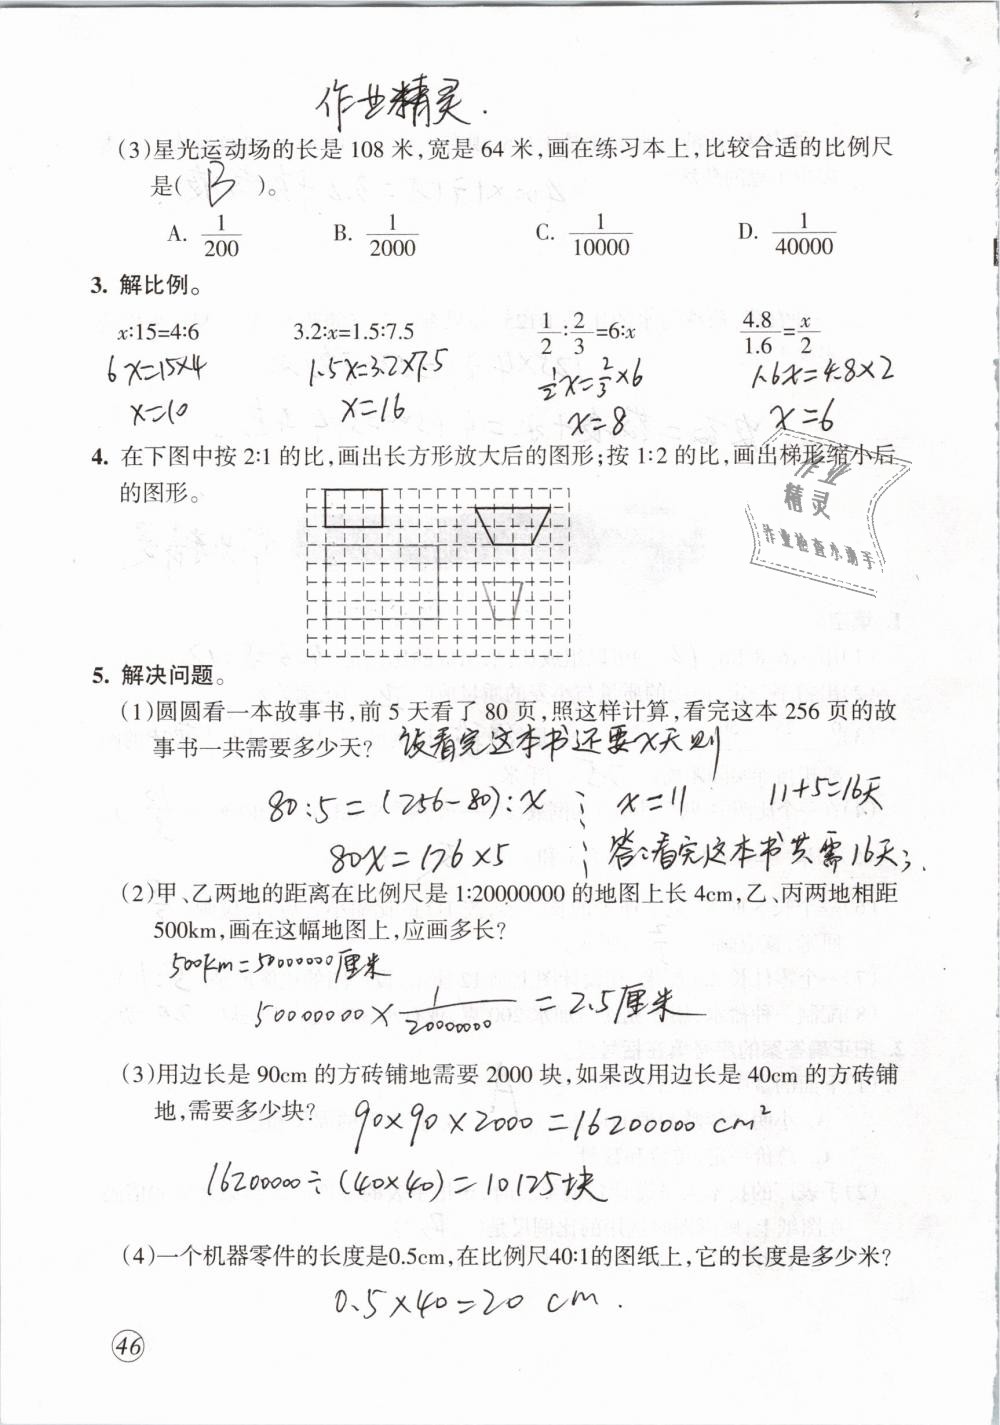 作业精灵.
(3)星光运动场的长是 108 米,宽是 64 米,画在练习本上,比较合适的比例尺
是( B )。
A. 1/200 B. 1/2000 C. 1/10000 D. 1/40000
3. 解比例。
x∶15=4∶6 3.2∶x=1.5∶7.5 1/2∶2/3=6∶x 4.8/1.6=x/2
6x=15×4 1.5x=3.2×7.5 1/2x=2/3×6 1.6x=4.8×2
x=10 x=16 x=8 x=6
4. 在下图中按 2∶1 的比,画出长方形放大后的图形;按 1∶2 的比,画出梯形缩小后
的图形。
作业
精灵
作业检查小助手
5. 解决问题。
(1)圆圆看一本故事书,前 5 天看了 80 页,照这样计算,看完这本 256 页的故
事书一共需要多少天? 设看完这本书还要x天则
80:5=(256-80):x x=11 11+5=16天
80x=176×5 答:看完这本书共需16天
(2)甲、乙两地的距离在比例尺是 1∶20000000 的地图上长 4cm,乙、丙两地相距
500km,画在这幅地图上,应画多长?
500km=50000000厘米
50000000×1/20000000=2.5厘米
(3)用边长是 90cm 的方砖铺地需要 2000 块,如果改用边长是 40cm 的方砖铺
地,需要多少块? 90×90×2000=16200000 cm²
16200000÷(40×40)=10125块
(4)一个机器零件的长度是0.5cm,在比例尺40∶1的图纸上,它的长度是多少米?
0.5×40=20 cm.
46